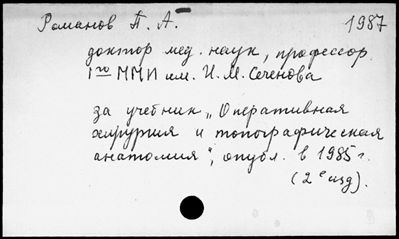 Романов П. А. 1987
доктор мед. наук, профессор
I го ММИ им. И. М. Сеченова
за учебник „Оперативная
хирургия и топографическая
анатомия", опубл. в 1985 г.
(2 е изд).